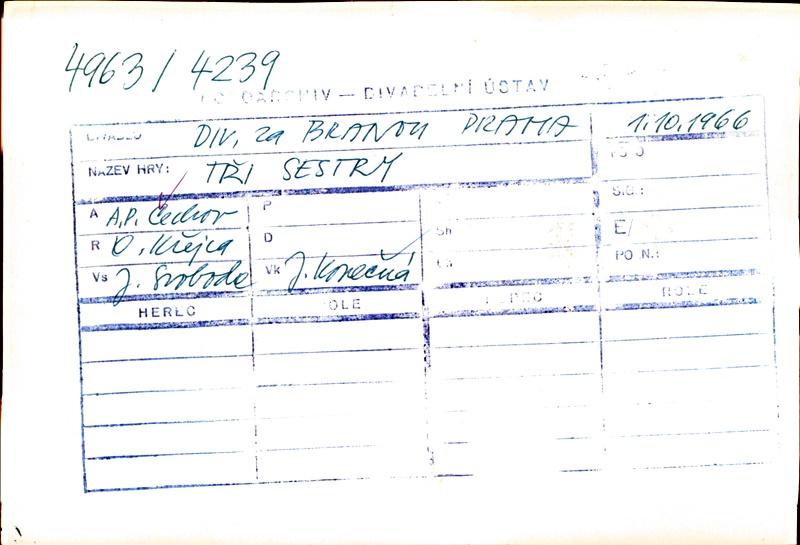 4963 / 4239
FOTOARCHIV — DIVADELNÍ ÚSTAV
DIVADLO DIV. za BRANOU PRAHA 1.10.1966
NÁZEV HRY: TŘI SESTRY
S.O.:
A A.P. Čechov P
R O. Krejča D Sh
E/
Vs J. Svoboda Vk J. Konečná
PO N.:
HEREC ROLE HEREC ROLE